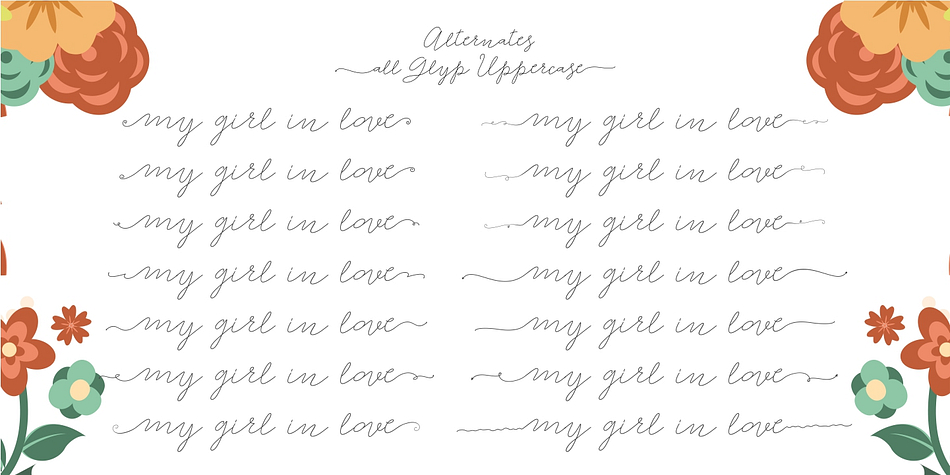 Alternates
all Glyp Uppercase
my girl in love
my girl in love
my girl in love
my girl in love
my girl in love
my girl in love
my girl in love
my girl in love
my girl in love
my girl in love
my girl in love
my girl in love
my girl in love
my girl in love